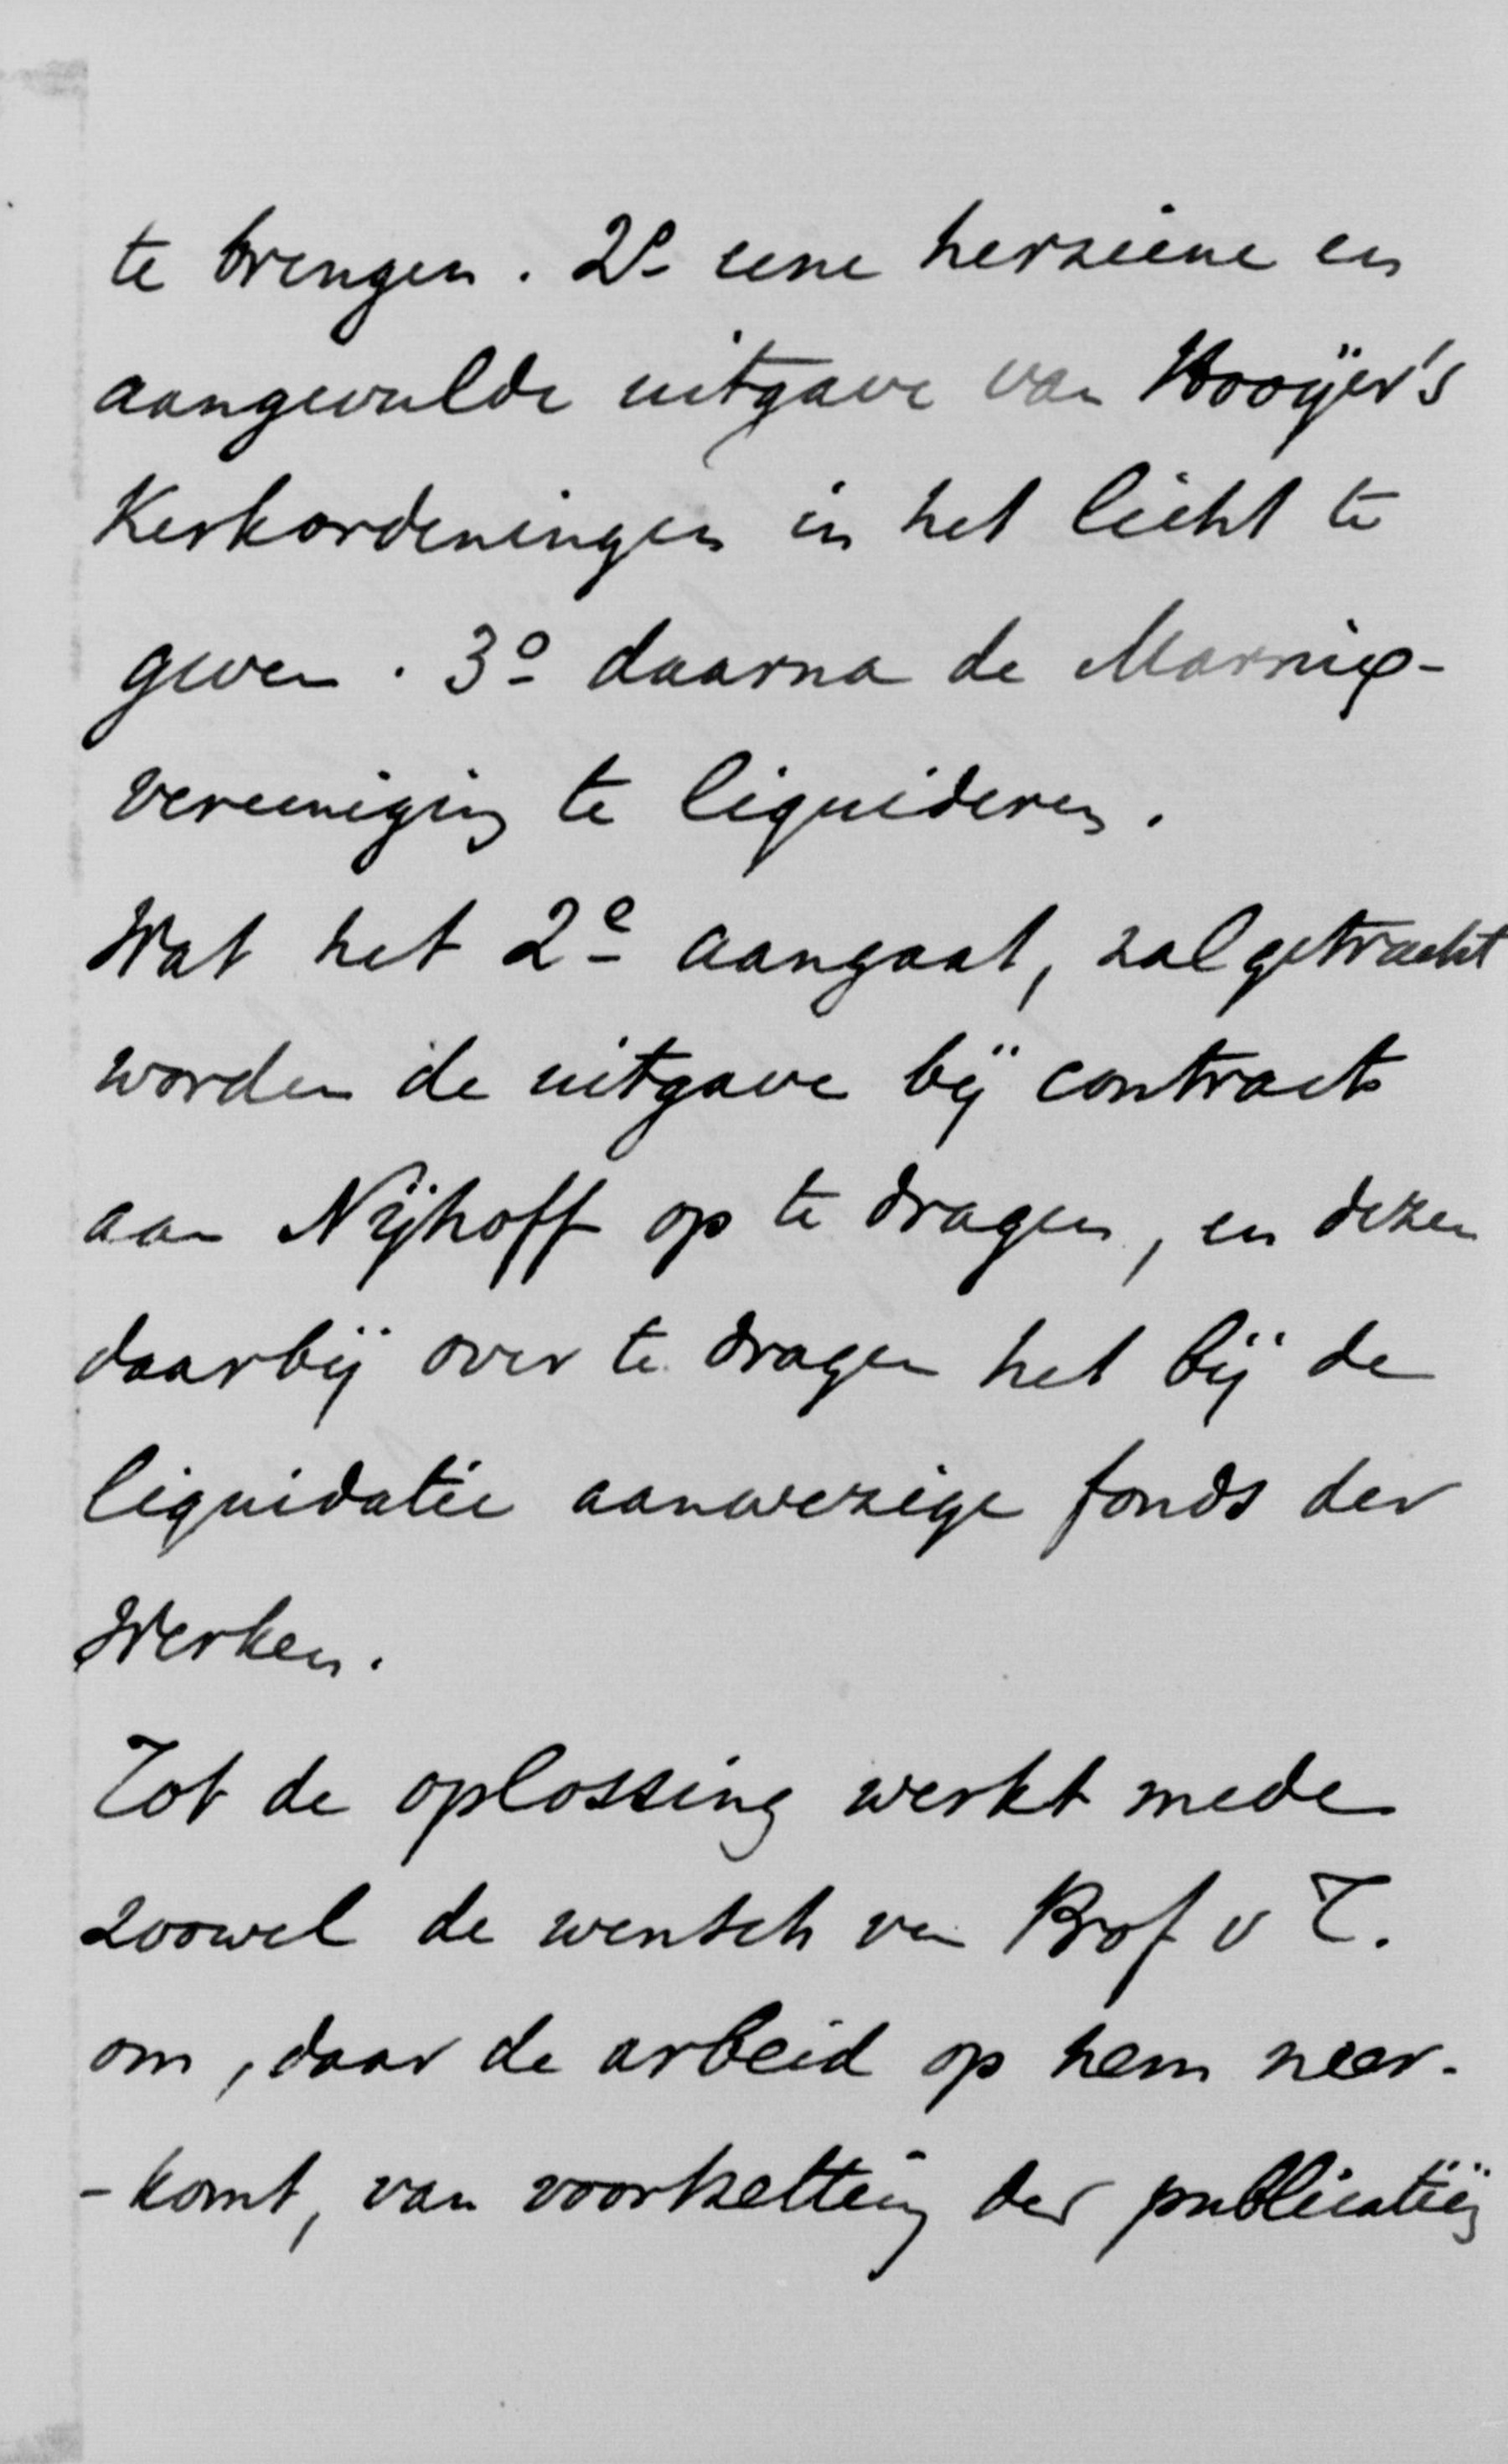 te brengen. 2e eene herziene en
aangevulde uitgave van Hooijer's
Kerkordeningen in het licht te
geven. 3o daarna de Marnix-
vereeniging te liquideren.
Wat het 2e aangaat, zal getracht
worden de uitgave bij contract
aan Nijhoff op te dragen, en dezen
daarbij over te dragen het bij de
liquidatie aanwezige fonds der
Werken.
Tot de oplossing werkt mede
zoowel de wensch van Prof v T.
om, daar de arbeid op hem neer-
-komt, van voortzetting der publicatiën